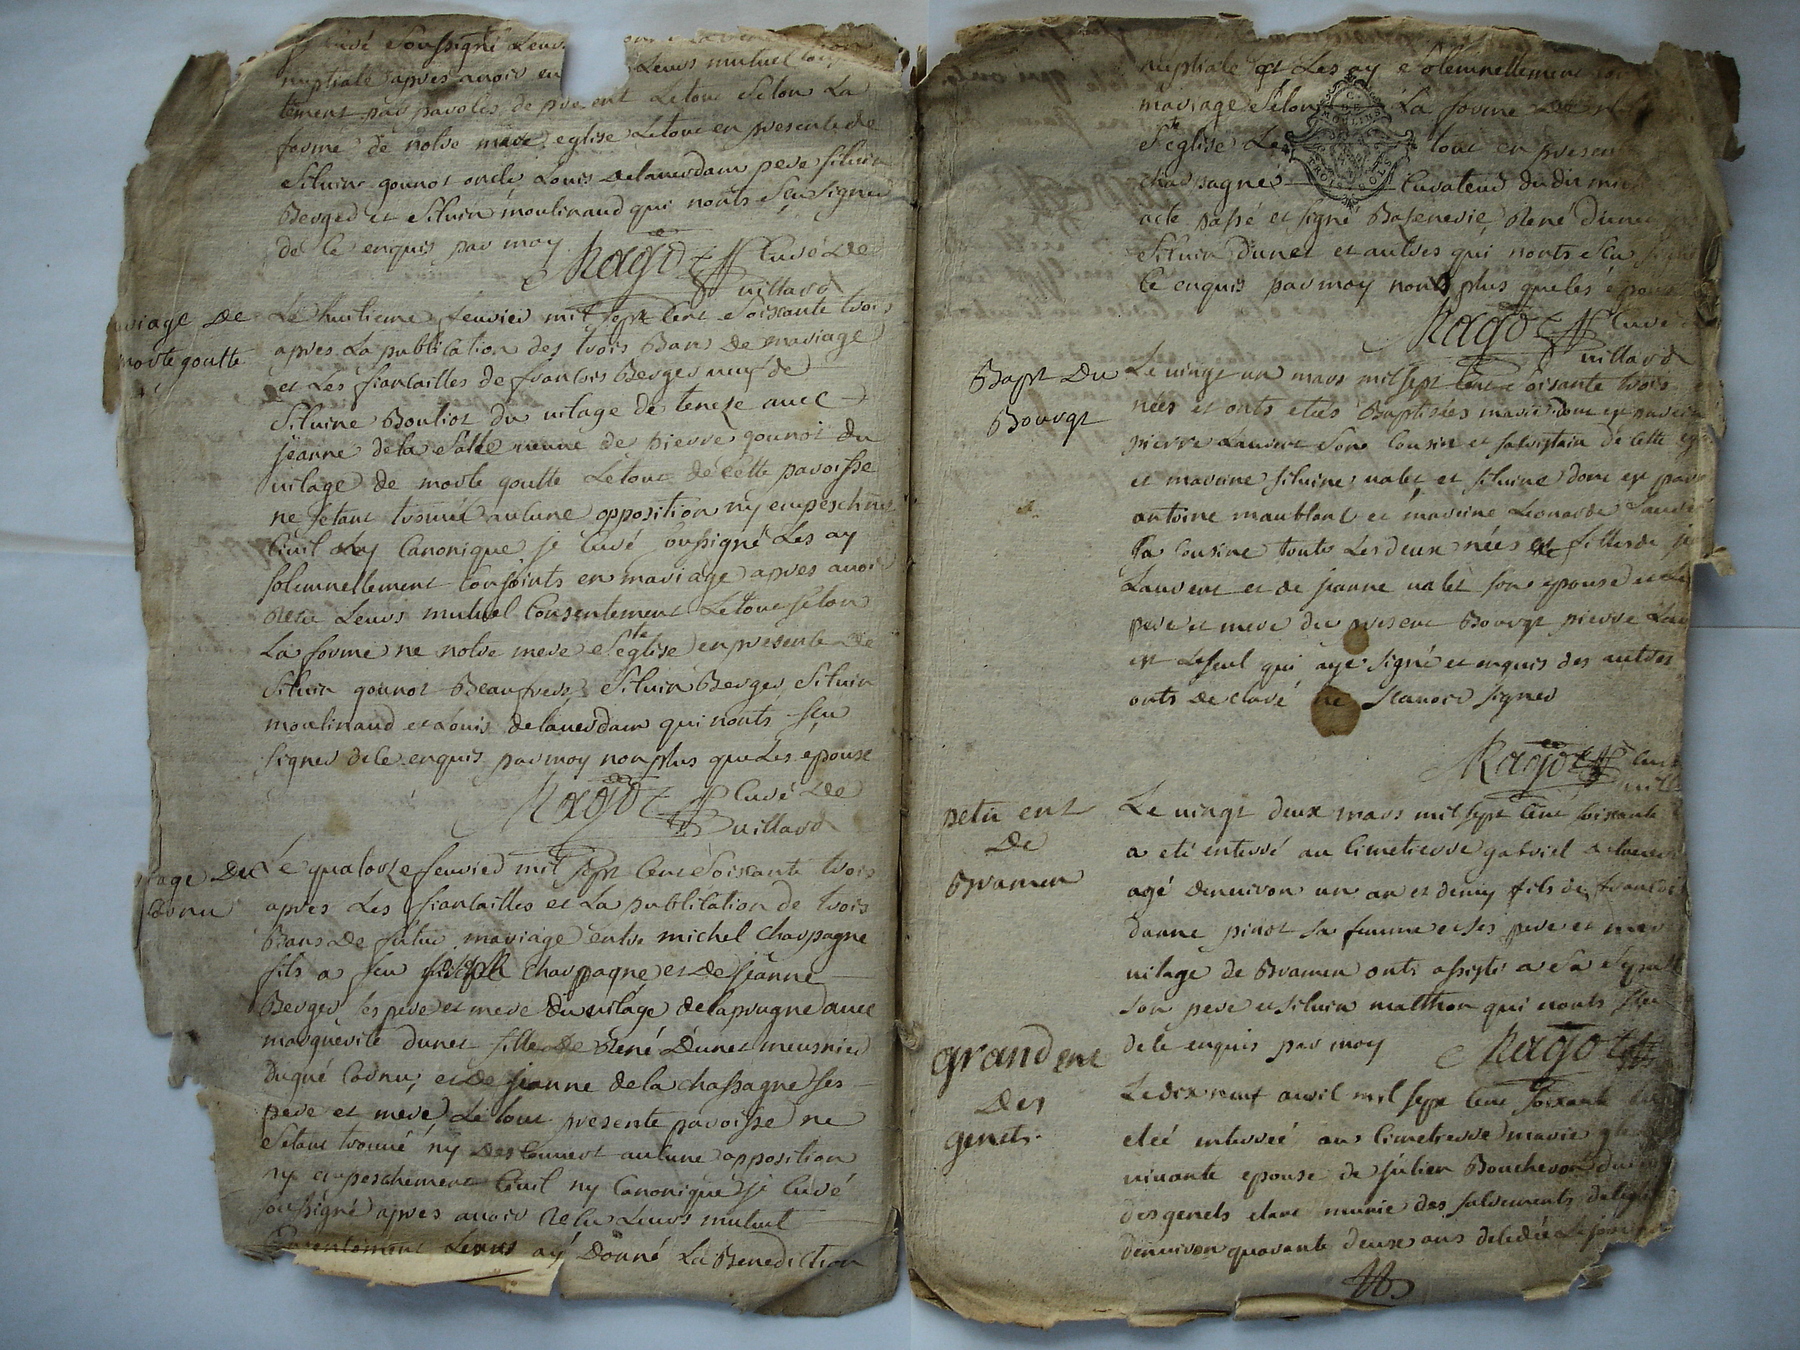 curé soussigné leurs
nuptiale apres avoir eu leurs mutuel
tement par paroles de present letout selon la
forme de notre mere eglise letout en presente de
Siluin gounot oncle Louis delaverdam pere Siluin
Berger et Siluin moulinaud qui nonts sçu signer
de le enquis par moy
Ragot curé de
Villard
mariage de
morte goutte
Le huitieme feuvier mil sept cent soissante trois
apres la publication des trois Bans de mariage
et Les fiantailles de francois Berger neuf de
Siluine Bouliot du vilage de tenese avec
jeanne dela Salle veuve de pierre gounot du
vilage de morte goutte Letout de cette paroisse
ne setant trouvé aulune opposition ny empeschmt
Civil ny Canonique je curé soussigné Les ay
solemnellement Conjoints en mariage apres avoir
reçu Leurs mutuel Consentement Letout selon
La forme ne notre mere Ste eglise en presente de
Siluin gounot Beaufrere, Siluin Berger, Siluin
moulinaud et Louis delaverdam qui nonts sçu
signer dele enquis par moy non plus que Les epouse
Ragot curé de
Villard
Le quatorze feuvier mil sept cent soissante trois
apres Les fiantailles et La publication de trois
Bans de futur mariage entre michel charpagne
fils a feu charpagne et de jeanne
Berger ses pere et mere du vilage de laprugne avec
marguerite dunet fille de René dunet meusnier
Dugué Cornu, et de jeanne de la chassagne ses
pere et mere Letout presente paroisse ne
setant trouvé ny descouvert aulune opposition
ny empeschement Civil ny Canonique je curé
soussigné apres avoir reçu Leurs mutuel
Consentement Leurs ay donné La Benediction
nuptiale et Les ay solemnellement
mariage selon La forme de
Ste eglise Le tout en present
charpagne Curateur dudit michel
acte passé et signé René dunet
Siluin dunet et autres qui nonts sçu signer
le enquis par moy non plus que les epouse
Ragot curé
Villard
Bapt du
Bourgt
Le vingt un mars mil sept cent soisante trois
nées et onts etées Baptisées marie dont est parein
pierre Laurent son Cousin et salristain de Cette
et mareine siluine valet et siluine dont est parein
antoine maublant et mareine Leonarde
sa Cousine toute Les deux nées et filles de
Laurent et de jeanne valet son epouse
pere et mere du present Bourgt pierre
est Leseul qui aye signé et enquis des autres
onts declaré ne scavoir signer
Ragot curé
petit ent
De
Bramen
Le vingt deux mars mil sept cent soissante
a eté enterré au Cimetierre gabriel
agé denviron un an et demy fils de francois
danne pinot sa femme et ses pere et mere
vilage de Bramen onts assisté a sa
son pere et siluin malthon qui nonts sçu
dele enquis par moy Ragot
grand ent
Des
genets.
Le dix neuf avril mil sept cent soixante
eteé enterreé au Cimetierre marie
vivante epouse de julien Boucheron
des genets etant munie des salrements de leglise
denviron quarante deux ans